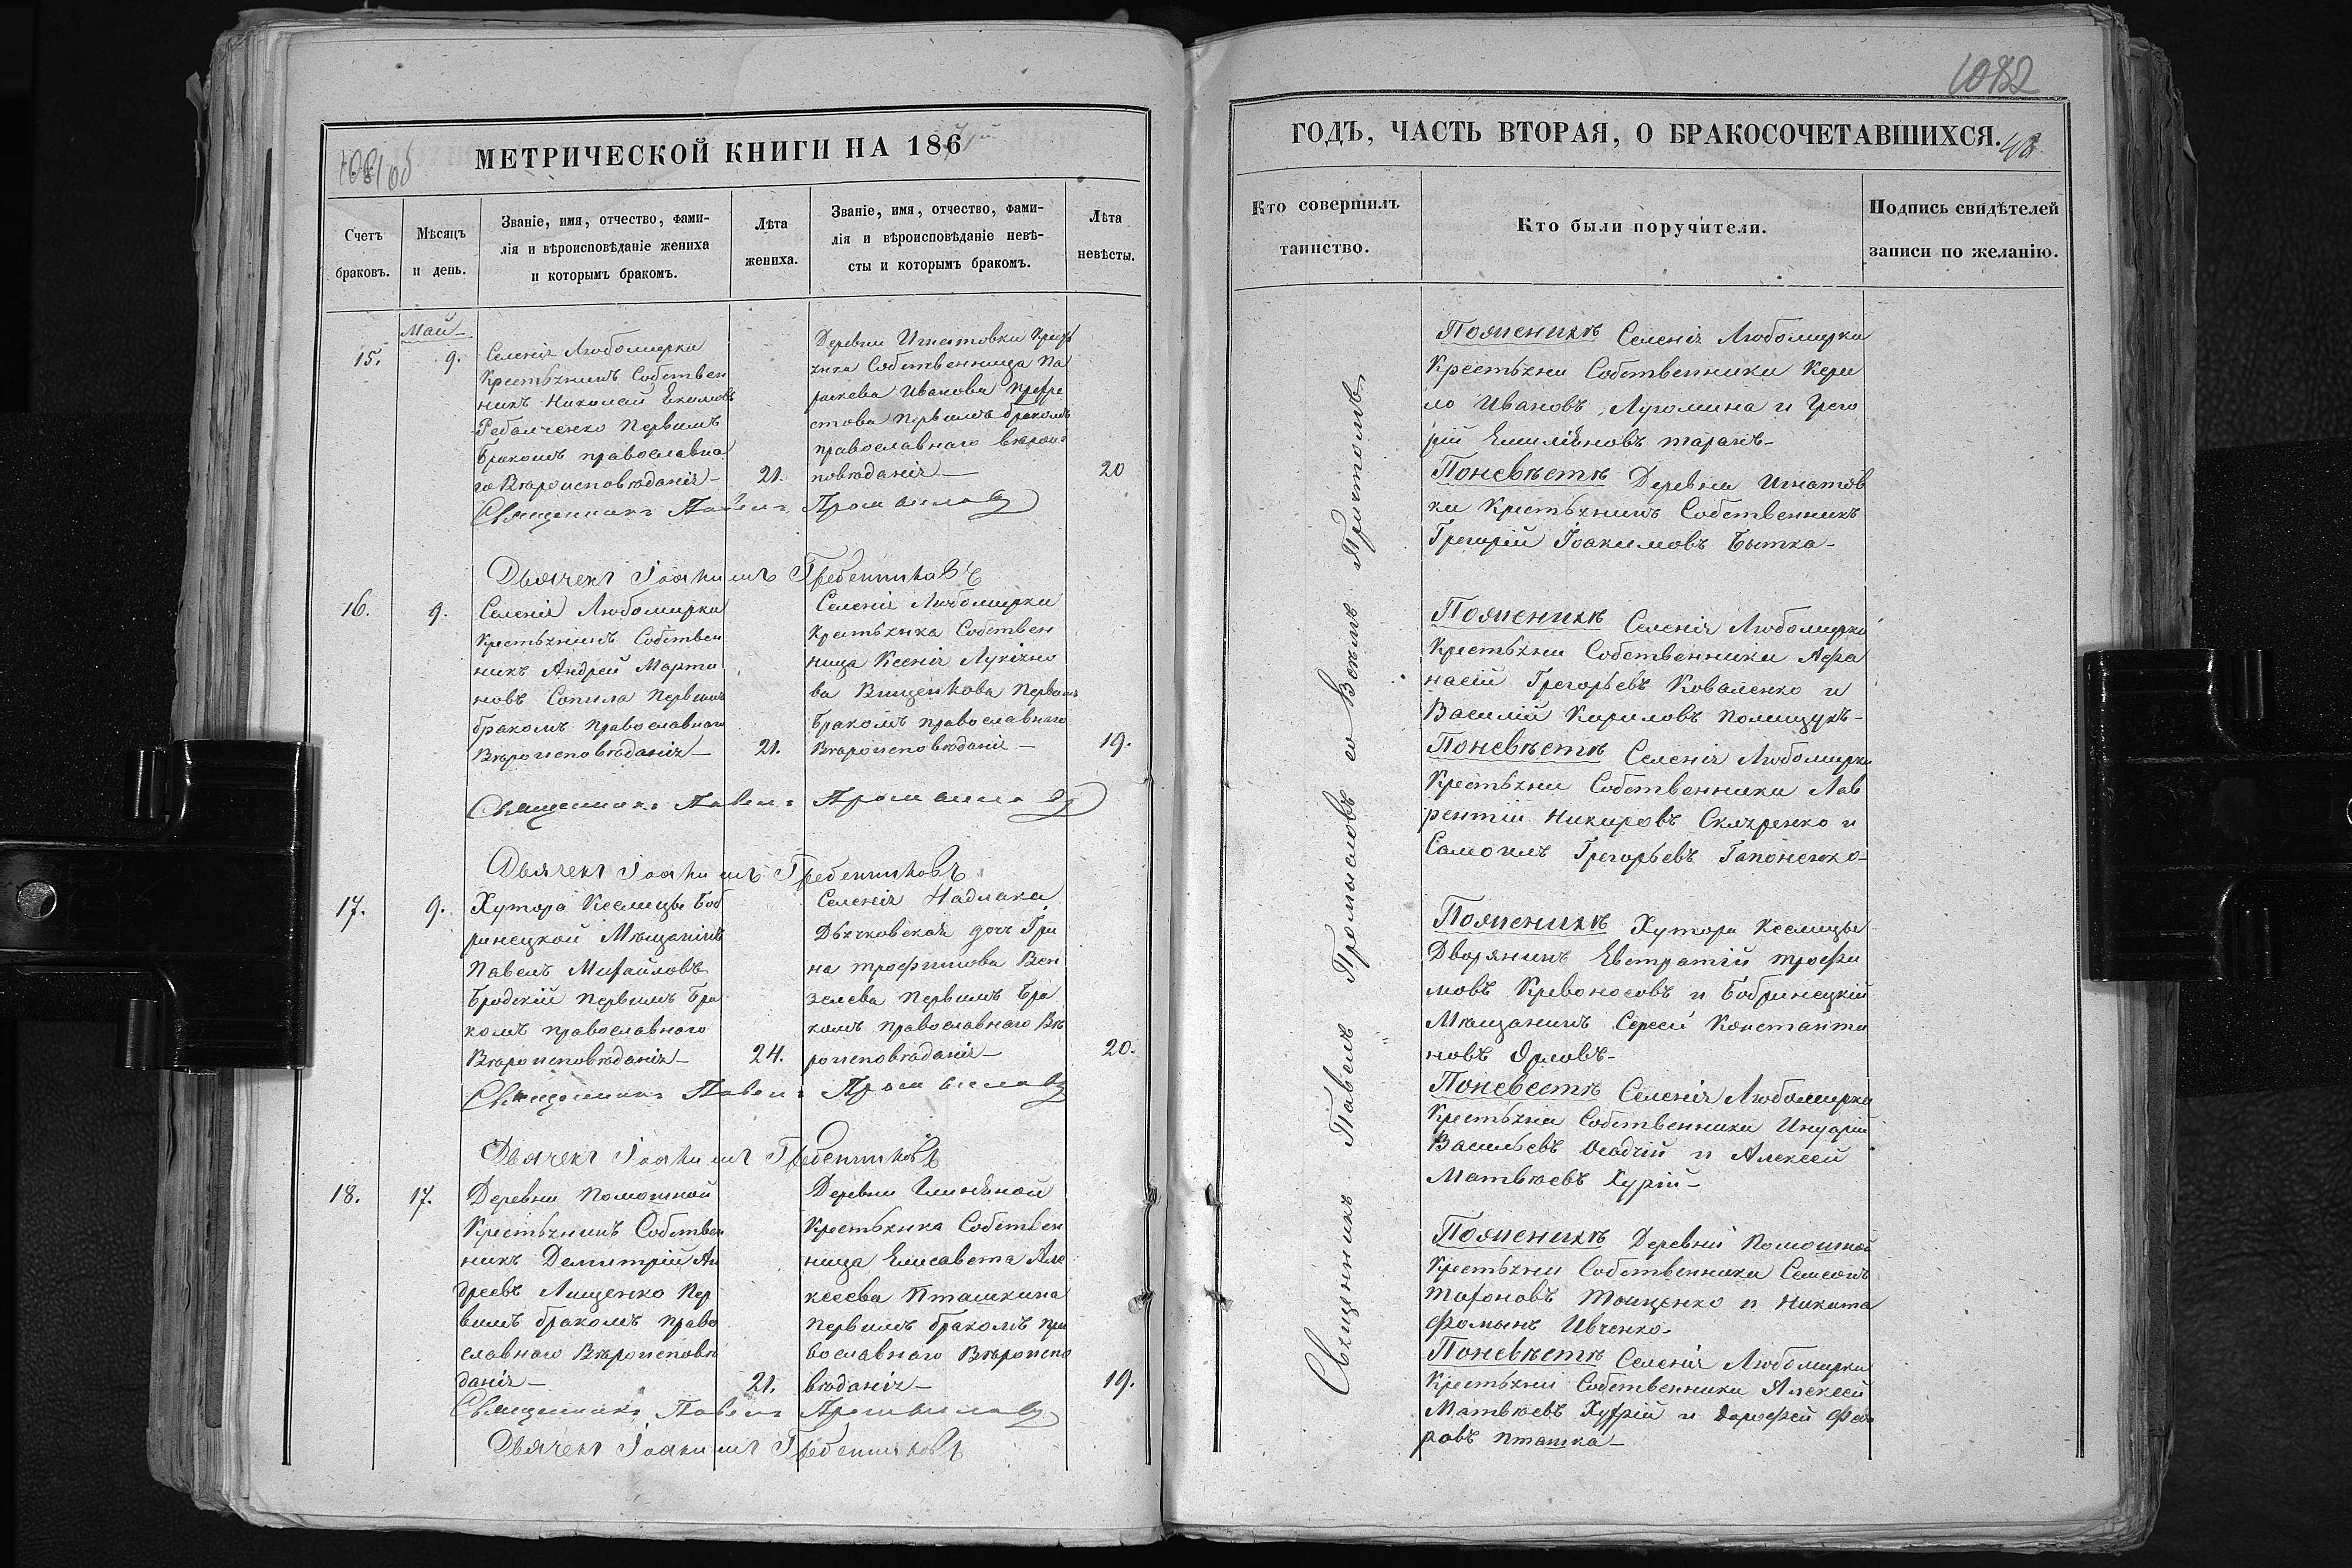 МЕТРИЧЕСКОЙ КНИГИ НА 186
Счетъ браковъ.
Мѣсяцъ и день.
Званіе, имя, отчество, фами-
лія и вѣроисповѣданіе жениха
и которымъ бракомъ.
Лѣта жениха.
Званіе, имя, отчество, фами-
лія и вѣроисповѣданіе невѣ-
сты и которымъ бракомъ.
Лѣта невѣсты.
Май
15.
9.
Селенія Любомирки
Крестьянинъ Собствен
никъ Николай
Первымъ
бракомъ православна
го Вѣроисповѣданія
21.
Деревни Игнатовки Крест
янка Собственница Па
раскева Иванова
Первымъ бракомъ
православнаго вѣроис
повѣданія
20
Священникъ Павелъ Промысловъ
Дьячекъ Іоакимъ Гребенниковъ
16.
9.
Селенія Любомирки
Крестьянинъ Собствен
никъ Андрей Марти
новъ Сопила Первымъ
бракомъ православнаго
Вѣроисповѣданія
21.
Селенія Любомирки
Крестьянка Собствен
ница Ксенія Лукіяно
ва Вищенкова Первымъ
бракомъ православнаго
Вѣроисповѣданія
19.
Священникъ Павелъ Промысловъ
Дьячекъ Іоакимъ Гребенниковъ
17.
9.
Хутора Кселицы Боб
ринецкой Мѣщанинъ
Павелъ Михайловъ
Бродскій Первымъ бра
комъ православнаго
Вѣроисповѣданія
24.
Селенія Надлака
Дьячковская дочь Ири
на Трофимова Вен
зелева Первымъ бра
комъ православнаго Вѣ
роисповѣданія
20.
Священникъ Павелъ Промысловъ
Дьячекъ Іоакимъ Гребенниковъ
18.
17.
Деревни Помошной
Крестьянинъ Собствен
никъ Димитрій Ан
дреевъ Лищенко Пер
вымъ бракомъ право
славнаго Вѣроисповѣ
данія
21.
Деревни Глиняной
Крестьянка Собствен
ница Елисавета Але
ксеева Пташкина
Первымъ бракомъ пра
вославнаго Вѣроиспо
вѣданія
19.
Священникъ Павелъ Промысловъ
Дьячекъ Іоакимъ Гребенниковъ
1082
ГОДЪ, ЧАСТЬ ВТОРАЯ, О БРАКОСОЧЕТАВШИХСЯ.
Кто совершилъ
таинство.
Кто были поручители.
Подпись свидѣтелей
записи по желанію.
Священникъ Павелъ Промысловъ со Всѣмъ Причтомъ
Поженихѣ Селенія Любомирки
Крестьяни Собственники Кери
ло Ивановъ Лугомина и Григо
рій Емиліяновъ Таранъ
Поневѣстѣ Деревни Игнатов
ки Крестьянинъ Собственникъ
Григорій Іоакимовъ Бытка
Поженихѣ Селенія Любомирки
Крестьяни Собственники Афа
насій Грегорьевъ Коваленко и
Василій Кириловъ Полищукъ
Поневѣстѣ Селенія Любомирки
Крестьяни Собственники Лав
рентій Никировъ Скляренко и
Самоилъ Грегорьевъ Гапоненко
Поженихѣ Хутора Кселицы
Дворянинъ Евстратій Трофи
мовъ Кривоносовъ и Бобринецкій
Мѣщанинъ Сергей Константи
новъ Орловъ
Поневестѣ Селенія Любомирки
Крестьяни Собственники
Васильевъ Осадчій и Алексей
Матвѣевъ Хурій
Поженихѣ Деревни Помошной
Крестьяни Собственники Семеонъ
Тищенко и Никита
Фоминъ Ивченко
Поневѣстѣ Селенія Любомирки
Крестьяни Собственники Алексей
Матвѣевъ Хурій и Дорофей Федо
ровъ Пташка